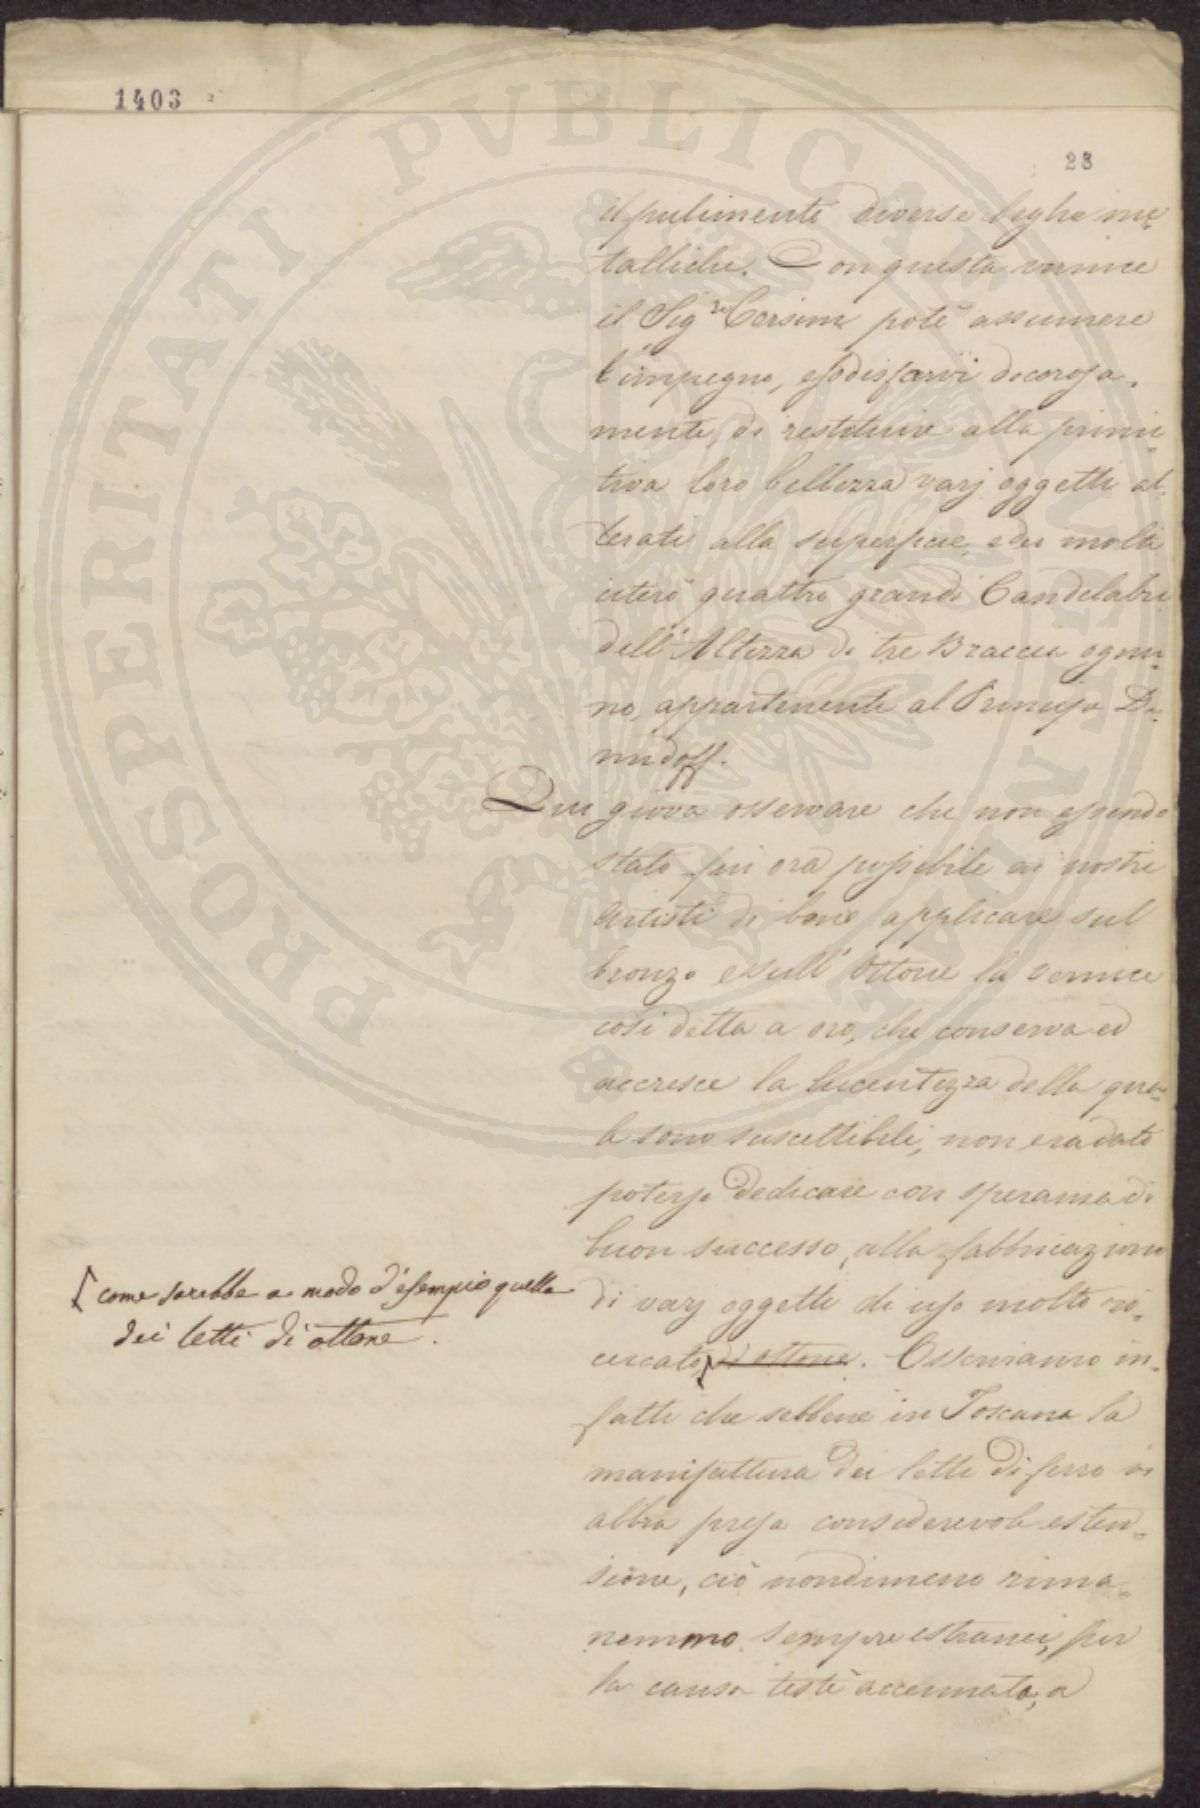 1403
23
il pulimento diverse leghe me-
talliche. Con questa vernice
il Sig.re Corsini potè assumere
l'impegno, e sodisfarvi decorosa-
mente, di restituire alla primi-
tiva loro bellezza varj oggetti al-
terati alla superficie, e dei molti
citerò quattro grandi Candelabri
dell'Altezza di tre Braccia ognu-
no, appartenenti al Principe De-
midoff.
Qui giova osservare che non essendo
stato fin ora possibile ai nostri
Artisti di bene applicare sul
bronzo e sull'Ottone la vernice
così detta a oro, che conserva ed
accresce la lucentezza della qua-
le sono suscettibili, non era dato
potersi dedicare con speranza di
buon successo, alla fabbricazione
come sarebbe a modo d'esempio quella
dei letti di ottone.
di varj oggetti di uso molto ri-
cercato, di ottone. Osserviamo in-
fatti che sebbene in Toscana la
manifattura dei letti di ferro vi
abbia presa considerevole esten-
sione, ciò nondimeno rima-
nemmo sempre estranei, per
la causa testè accennata, a